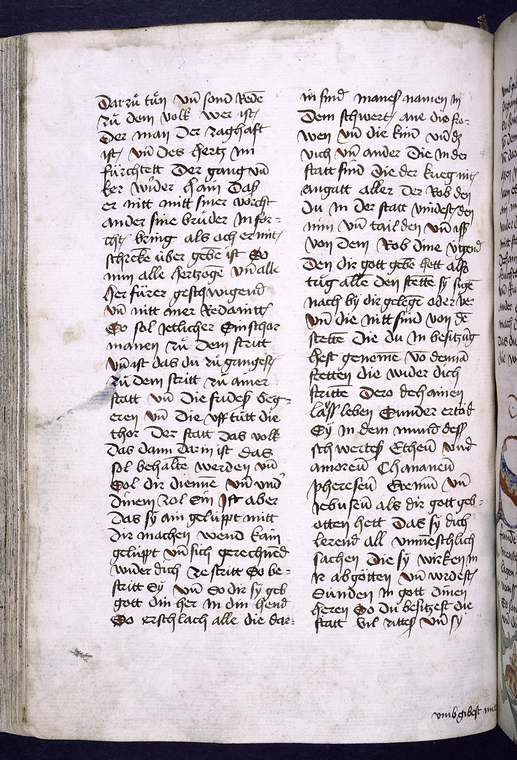 Dar zů tůn vn̄ sond Rede
zů dem volk wer ist
Der man der zaghaft
ist vn̄ des hertz im
fürchtett Der gang vn̄
ker wider haim Das
er nitt mitt siner vorcht
ander sine brüder in for-
cht bring als och er mit
schreke über gebe ist So
nun alle hertzoge vn̄ alle
her fürer geschwigend
vn̄ nitt mer Redantt
So sol jetlicher Ein schar
manen zů dem stritt
vn̄ ist das du zů gangest
zů dem stritt zů ainer
statt vn̄ die fudest beg-
eren vn̄ die vff tůtt die
thor Der statt das volk
das dann dar in ist das
sol behalte werden vn̄
Sol dir dienne vn̄ vnd
dinem zol sin Ist aber
Das sÿ ain gelüpt mitt
dir machen wend kain
gelüpt vn̄ sich gerechned
wider dich ze stritt So be-
stritt Sÿ vn̄ So dir sÿ geb
gott din her in din hend
So erschlach alle die dar-
in sind manes namen in
Dem schwert ane die fro-
wen vn̄ die kind vn̄ ds
vich vn̄ ander Die in der
statt sind Die der krieg nit
angatt aller Der Rob den
Du in der statt vindest den
nim vn̄ tail den vn̄ iss
von dem Rob dine vigend
Den dir gott gebe hett also
tůg alle den stette sÿ sige
nach by dir gelege oder ver
vn̄ die nitt sind von de
stette Die du in besitzūg
hest genome vo denen
stetten die wider dich
stritte Dero dehainen
lass leben Sunder ertöd
Sÿ in dem mund dess
schwertes Etheū vnd
amoreū Chananeū
phereseū Eueuū vn̄
Jebuseū als dir gott geb-
otten hett Das sÿ dich
lerend all vnmeschlich
sachen Die sÿ wirken in
ir abgötten vn̄ wirdest
Sünden in gott dinen
heren So du besitzest die
statt vil zittes vn̄ sÿ
vmb gibest mit